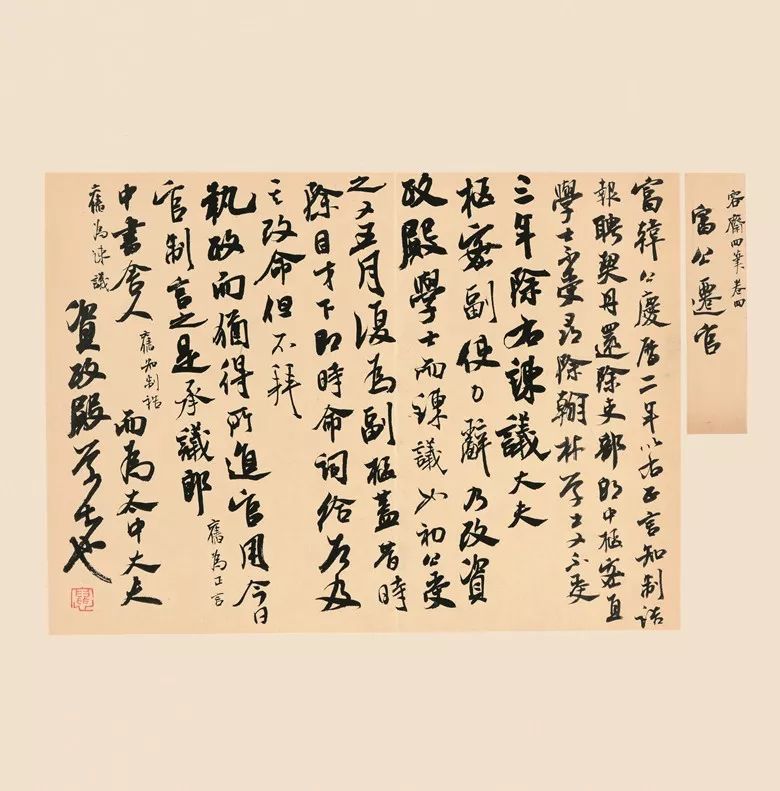 容齋四筆卷四
富公遷官
富韓公慶曆二年以右正言知制誥
報聘契丹還除吏部郎中樞密直
學士不受尋除翰林學士又不受
三年除右諫議大夫
樞密副使力辭乃改資
政殿學士而諫議如初公受
之又五月復為副樞蓋昔時
除目才下即時命詞給告及
其改命但不拜
執政而猶得所進官用今日
官制言之是承議郎舊為正言
中書舍人舊知制誥而為太中大夫
舊為諫議資政殿學士也